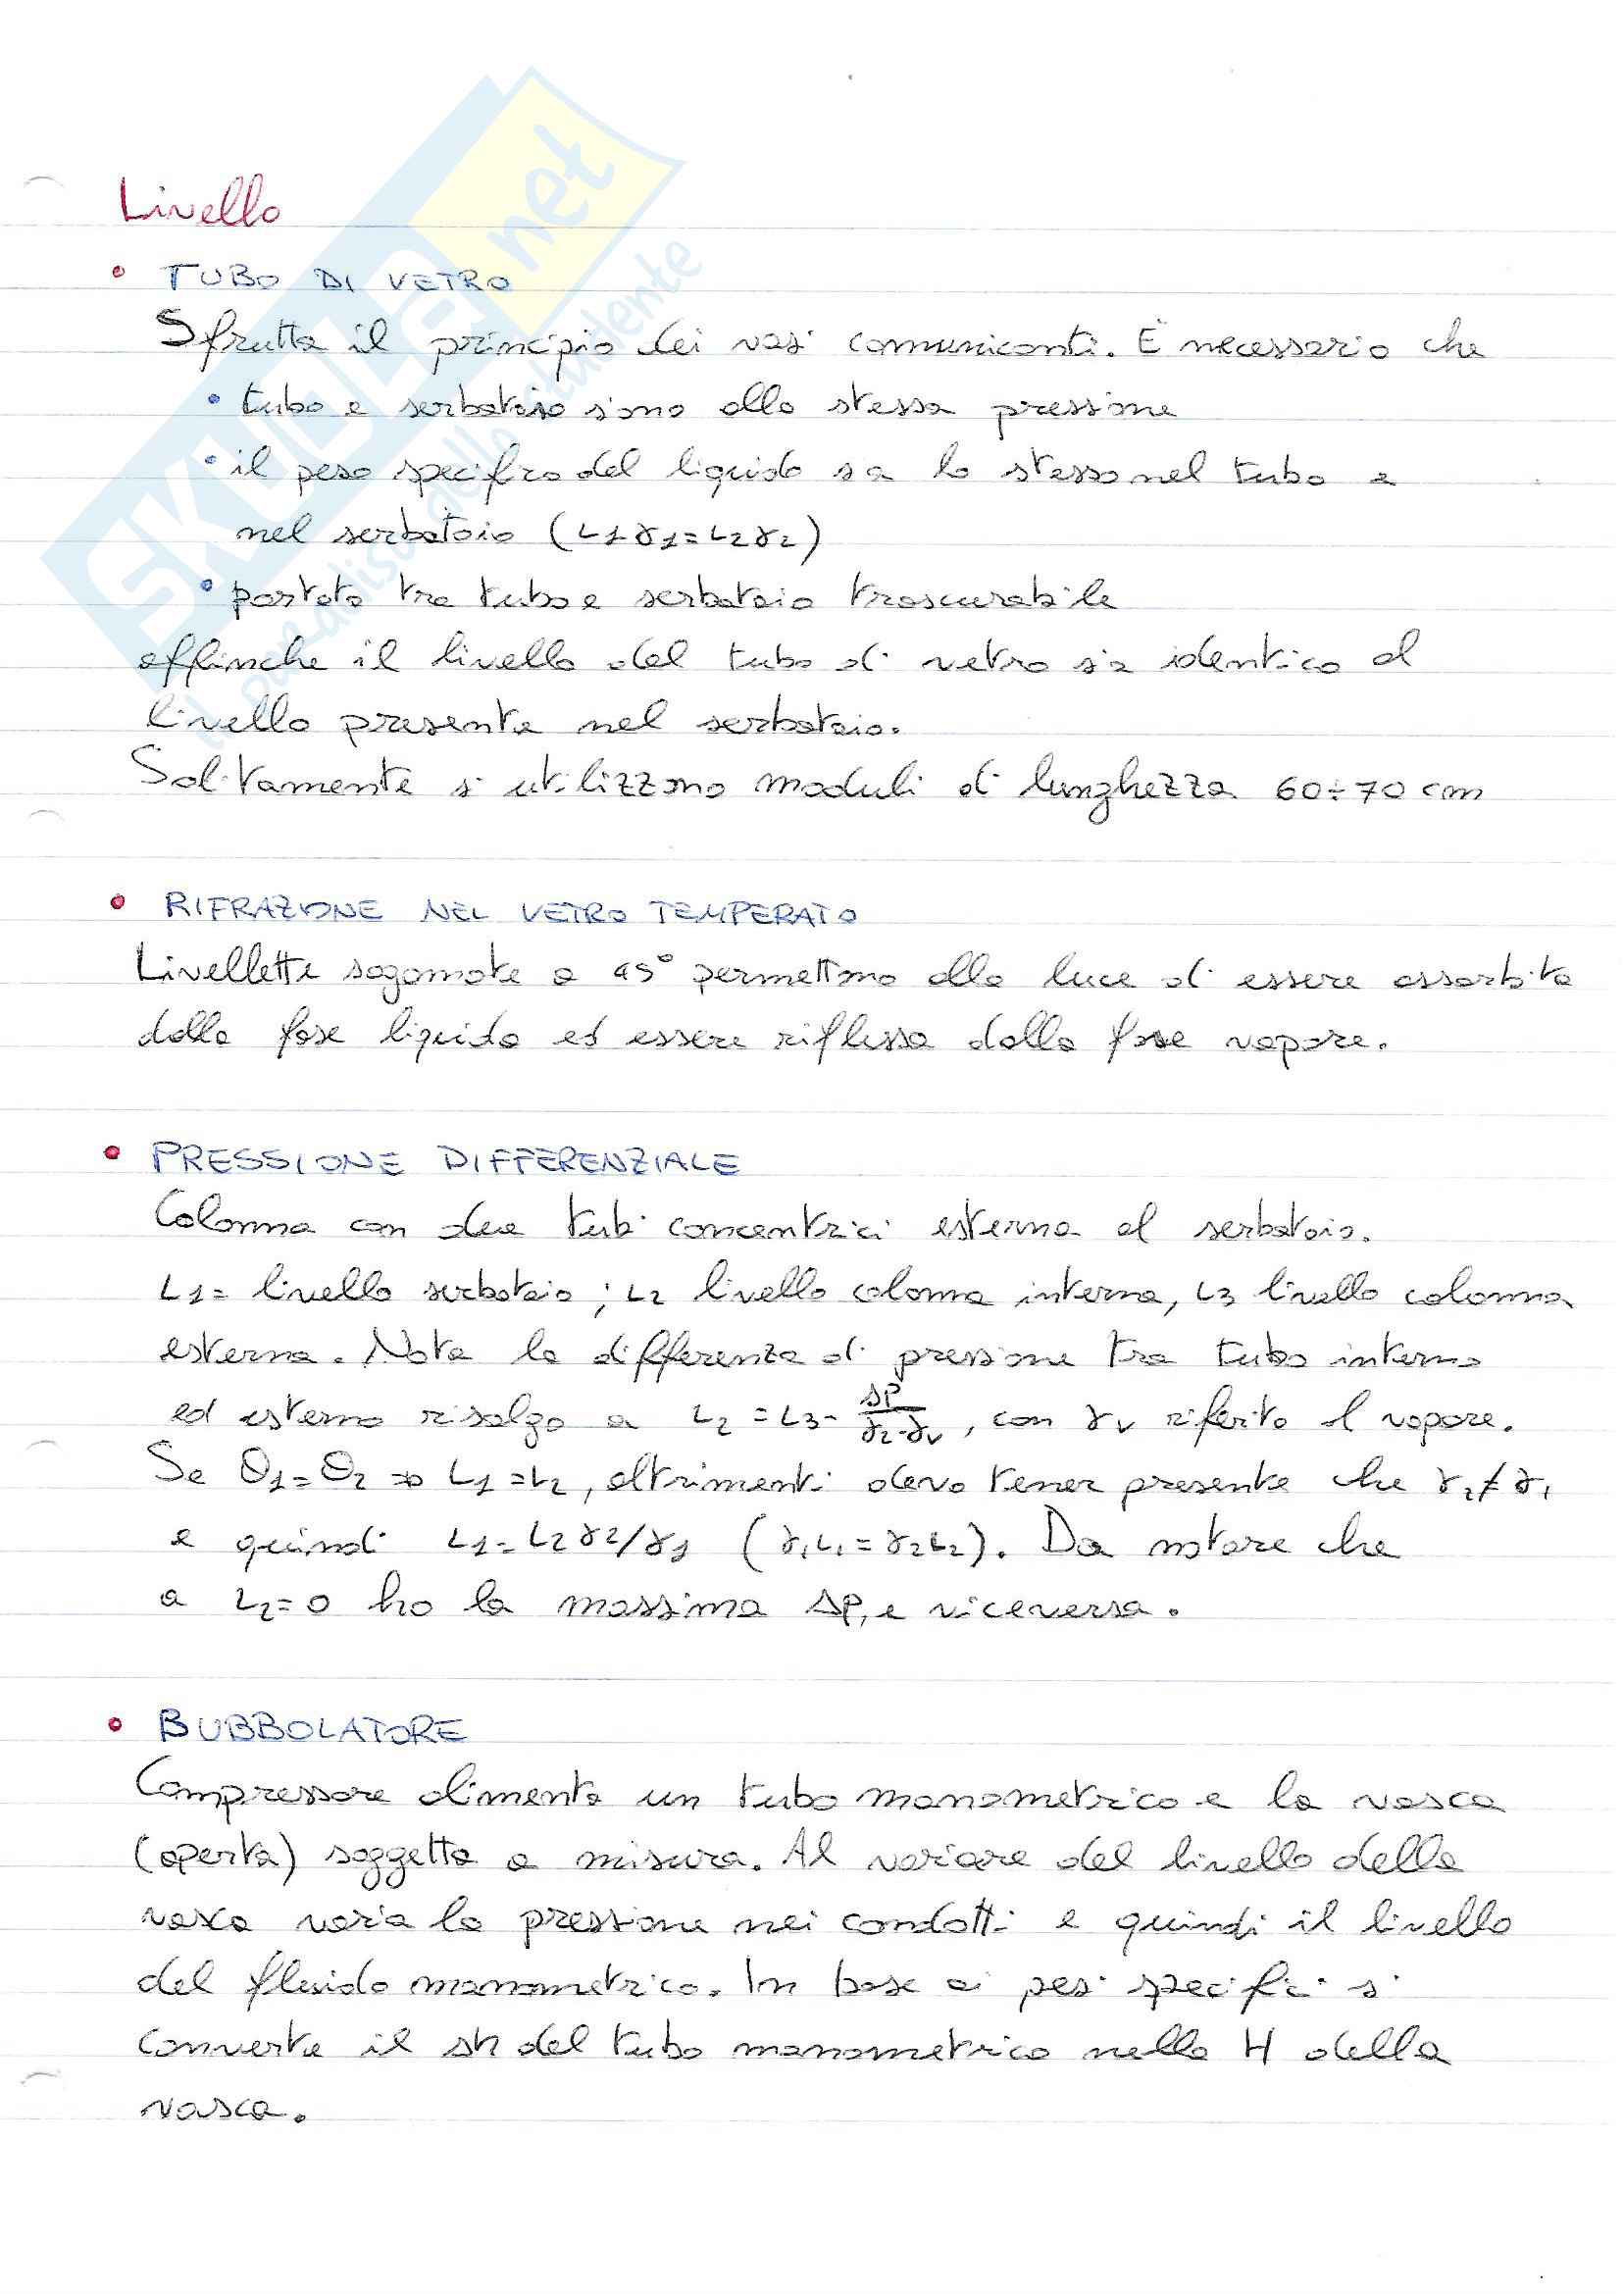 Livello
• TUBO DI VETRO
Sfrutta il principio dei vasi comunicanti. È necessario che
• tubo e serbatoio siano alla stessa pressione
• il peso specifico del liquido sia lo stesso nel tubo e
nel serbatoio (L1γ1=L2γ2)
• portata tra tubo e serbatoio trascurabile
affinche il livello del tubo di vetro sia identico al
livello presente nel serbatoio.
Solitamente si utilizzano moduli di lunghezza 60÷70 cm
• RIFRAZIONE NEL VETRO TEMPERATO
Livellette sagomate a 45° permettono alla luce di essere assorbita
dalla fase liquida ed essere riflessa dalla fase vapore.
• PRESSIONE DIFFERENZIALE
Colonna con due tubi concentrici esterna al serbatoio.
L1= livello serbatoio; L2 livello colonna interna, L3 livello colonna
esterna. Nota la differenza di pressione tra tubo interno
ed esterno risalgo a L2 = L3- ΔP/(γ2-γv), con γv riferito al vapore.
Se θ1=θ2 => L1=L2, altrimenti devo tener presente che γ2≠γ1
e quindi L1=L2γ2/γ1 (γ1L1=γ2L2). Da notare che
a L2=0 ho la massima ΔP, e viceversa.
• BUBBOLATORE
Compressore alimenta un tubo manometrico e la vasca
(aperta) soggetta a misura. Al variare del livello della
vasca varia la pressione nei condotti e quindi il livello
del fluido manometrico. In base ai pesi specifici si
converte il Δh del tubo manometrico nella H della
vasca.
SKUOLA.net
il paradiso dello studente